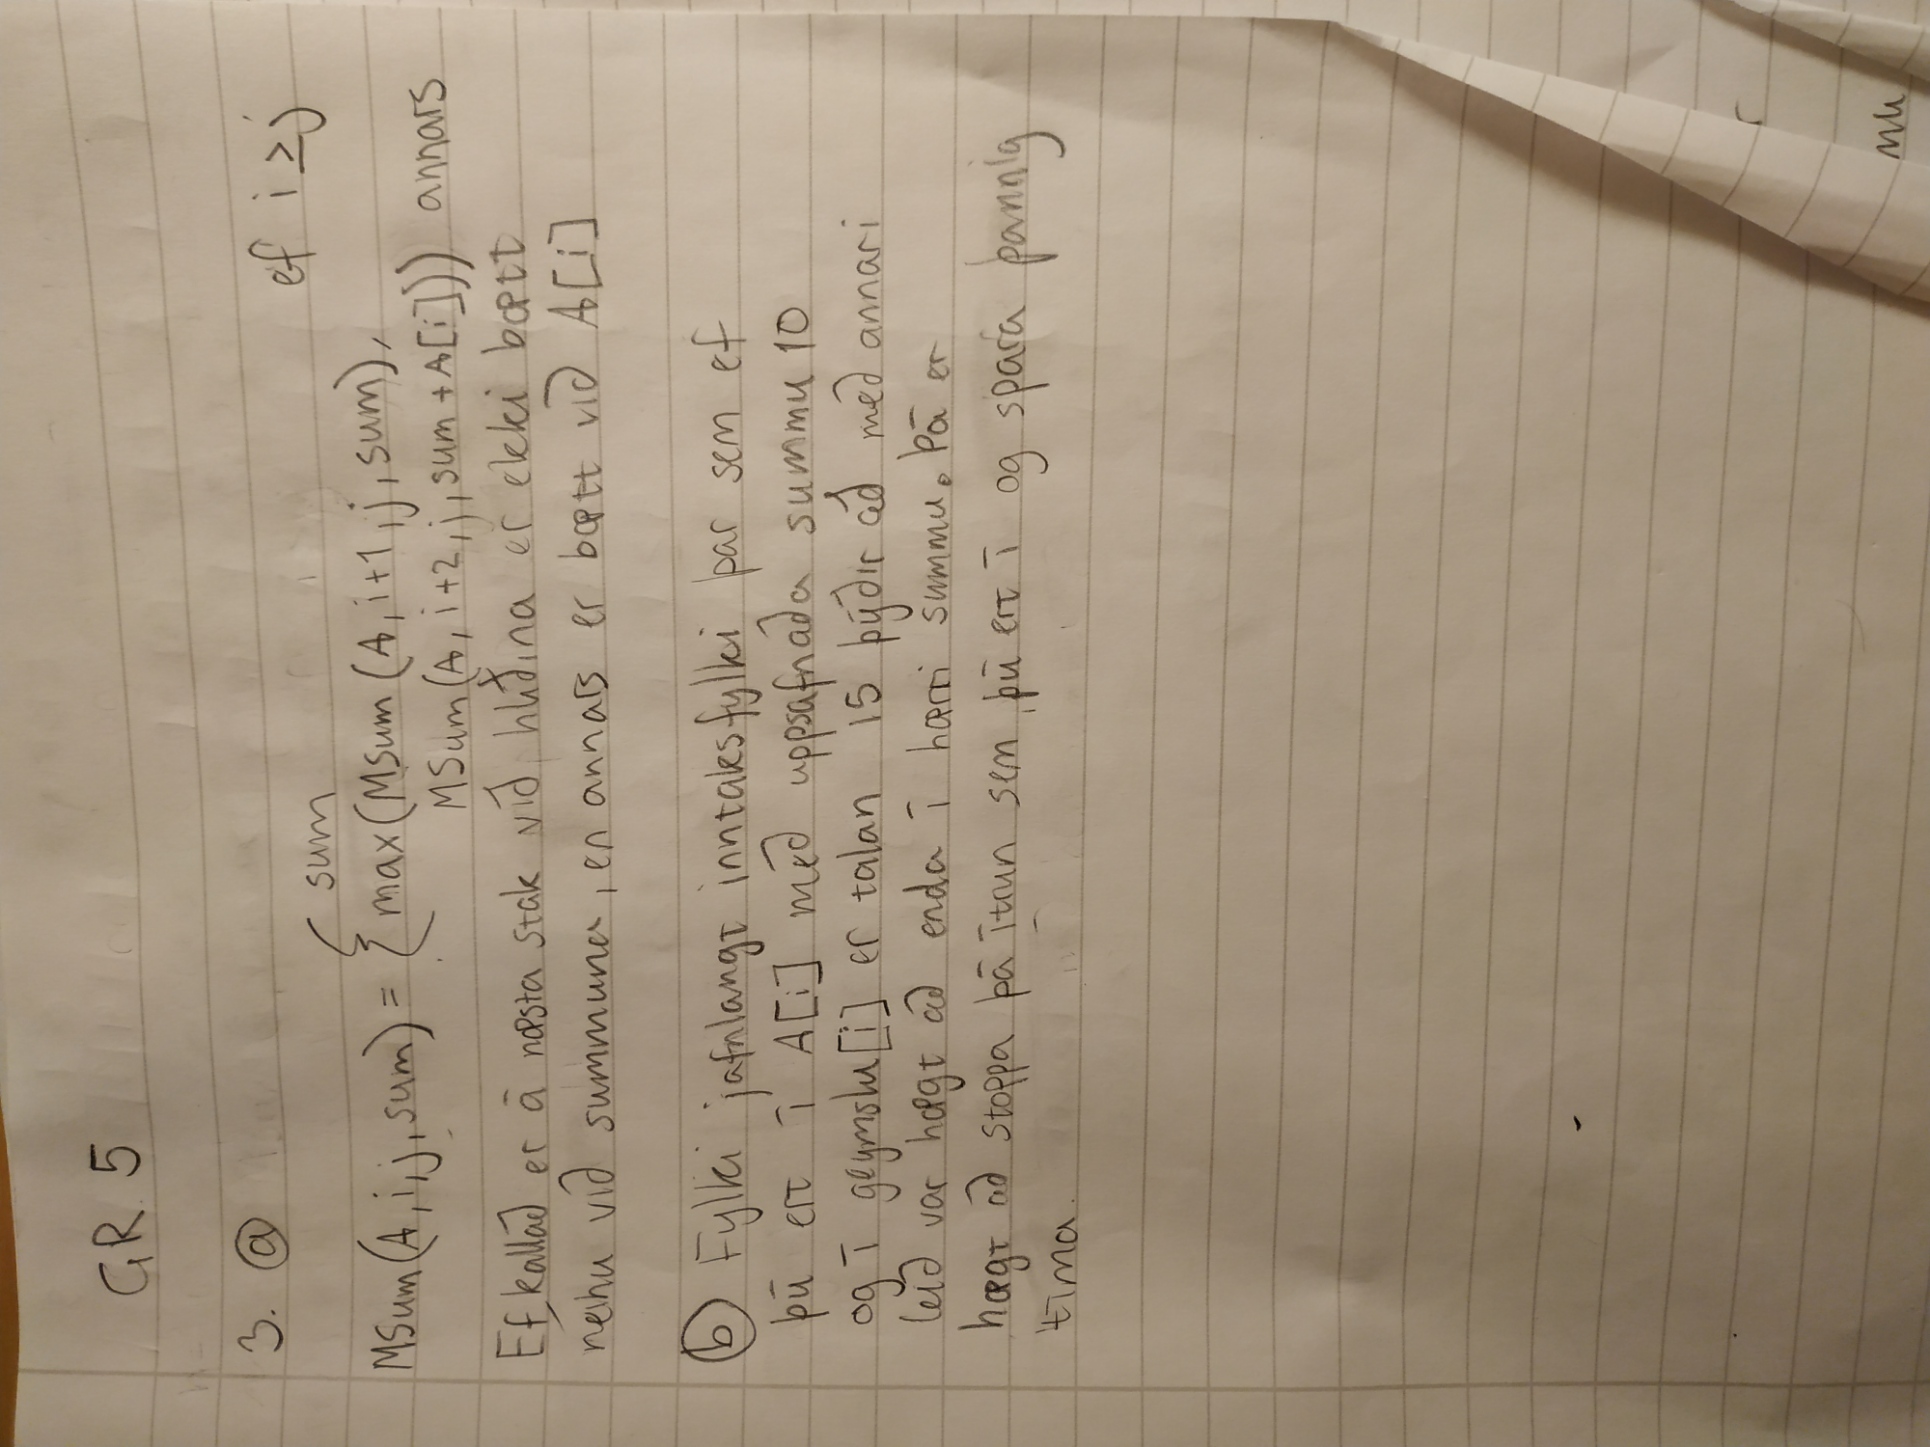 GR. 5
3. ⓐ
ef i ≥ j
{ sum
MSum(A, i, j, sum) = { max(MSum(A, i+1, j, sum),
MSum(A, i+2, j, sum + A[i])) annars
Ef kallað er á næsta stak við hliðina er ekki bætt
neinu við summuna, en annars er bætt við A[i]
ⓑ Fylki jafnlangt inntaksfylki þar sem ef
þú ert í A[i] með uppsafnaða summu 10
og í geymslu[i] er talan 15 þýðir að með annari
leið var hægt að enda í hærri summu. Þá er
hægt að stoppa þá ítrun sem þú ert í og spara þannig
tíma.
r
nu